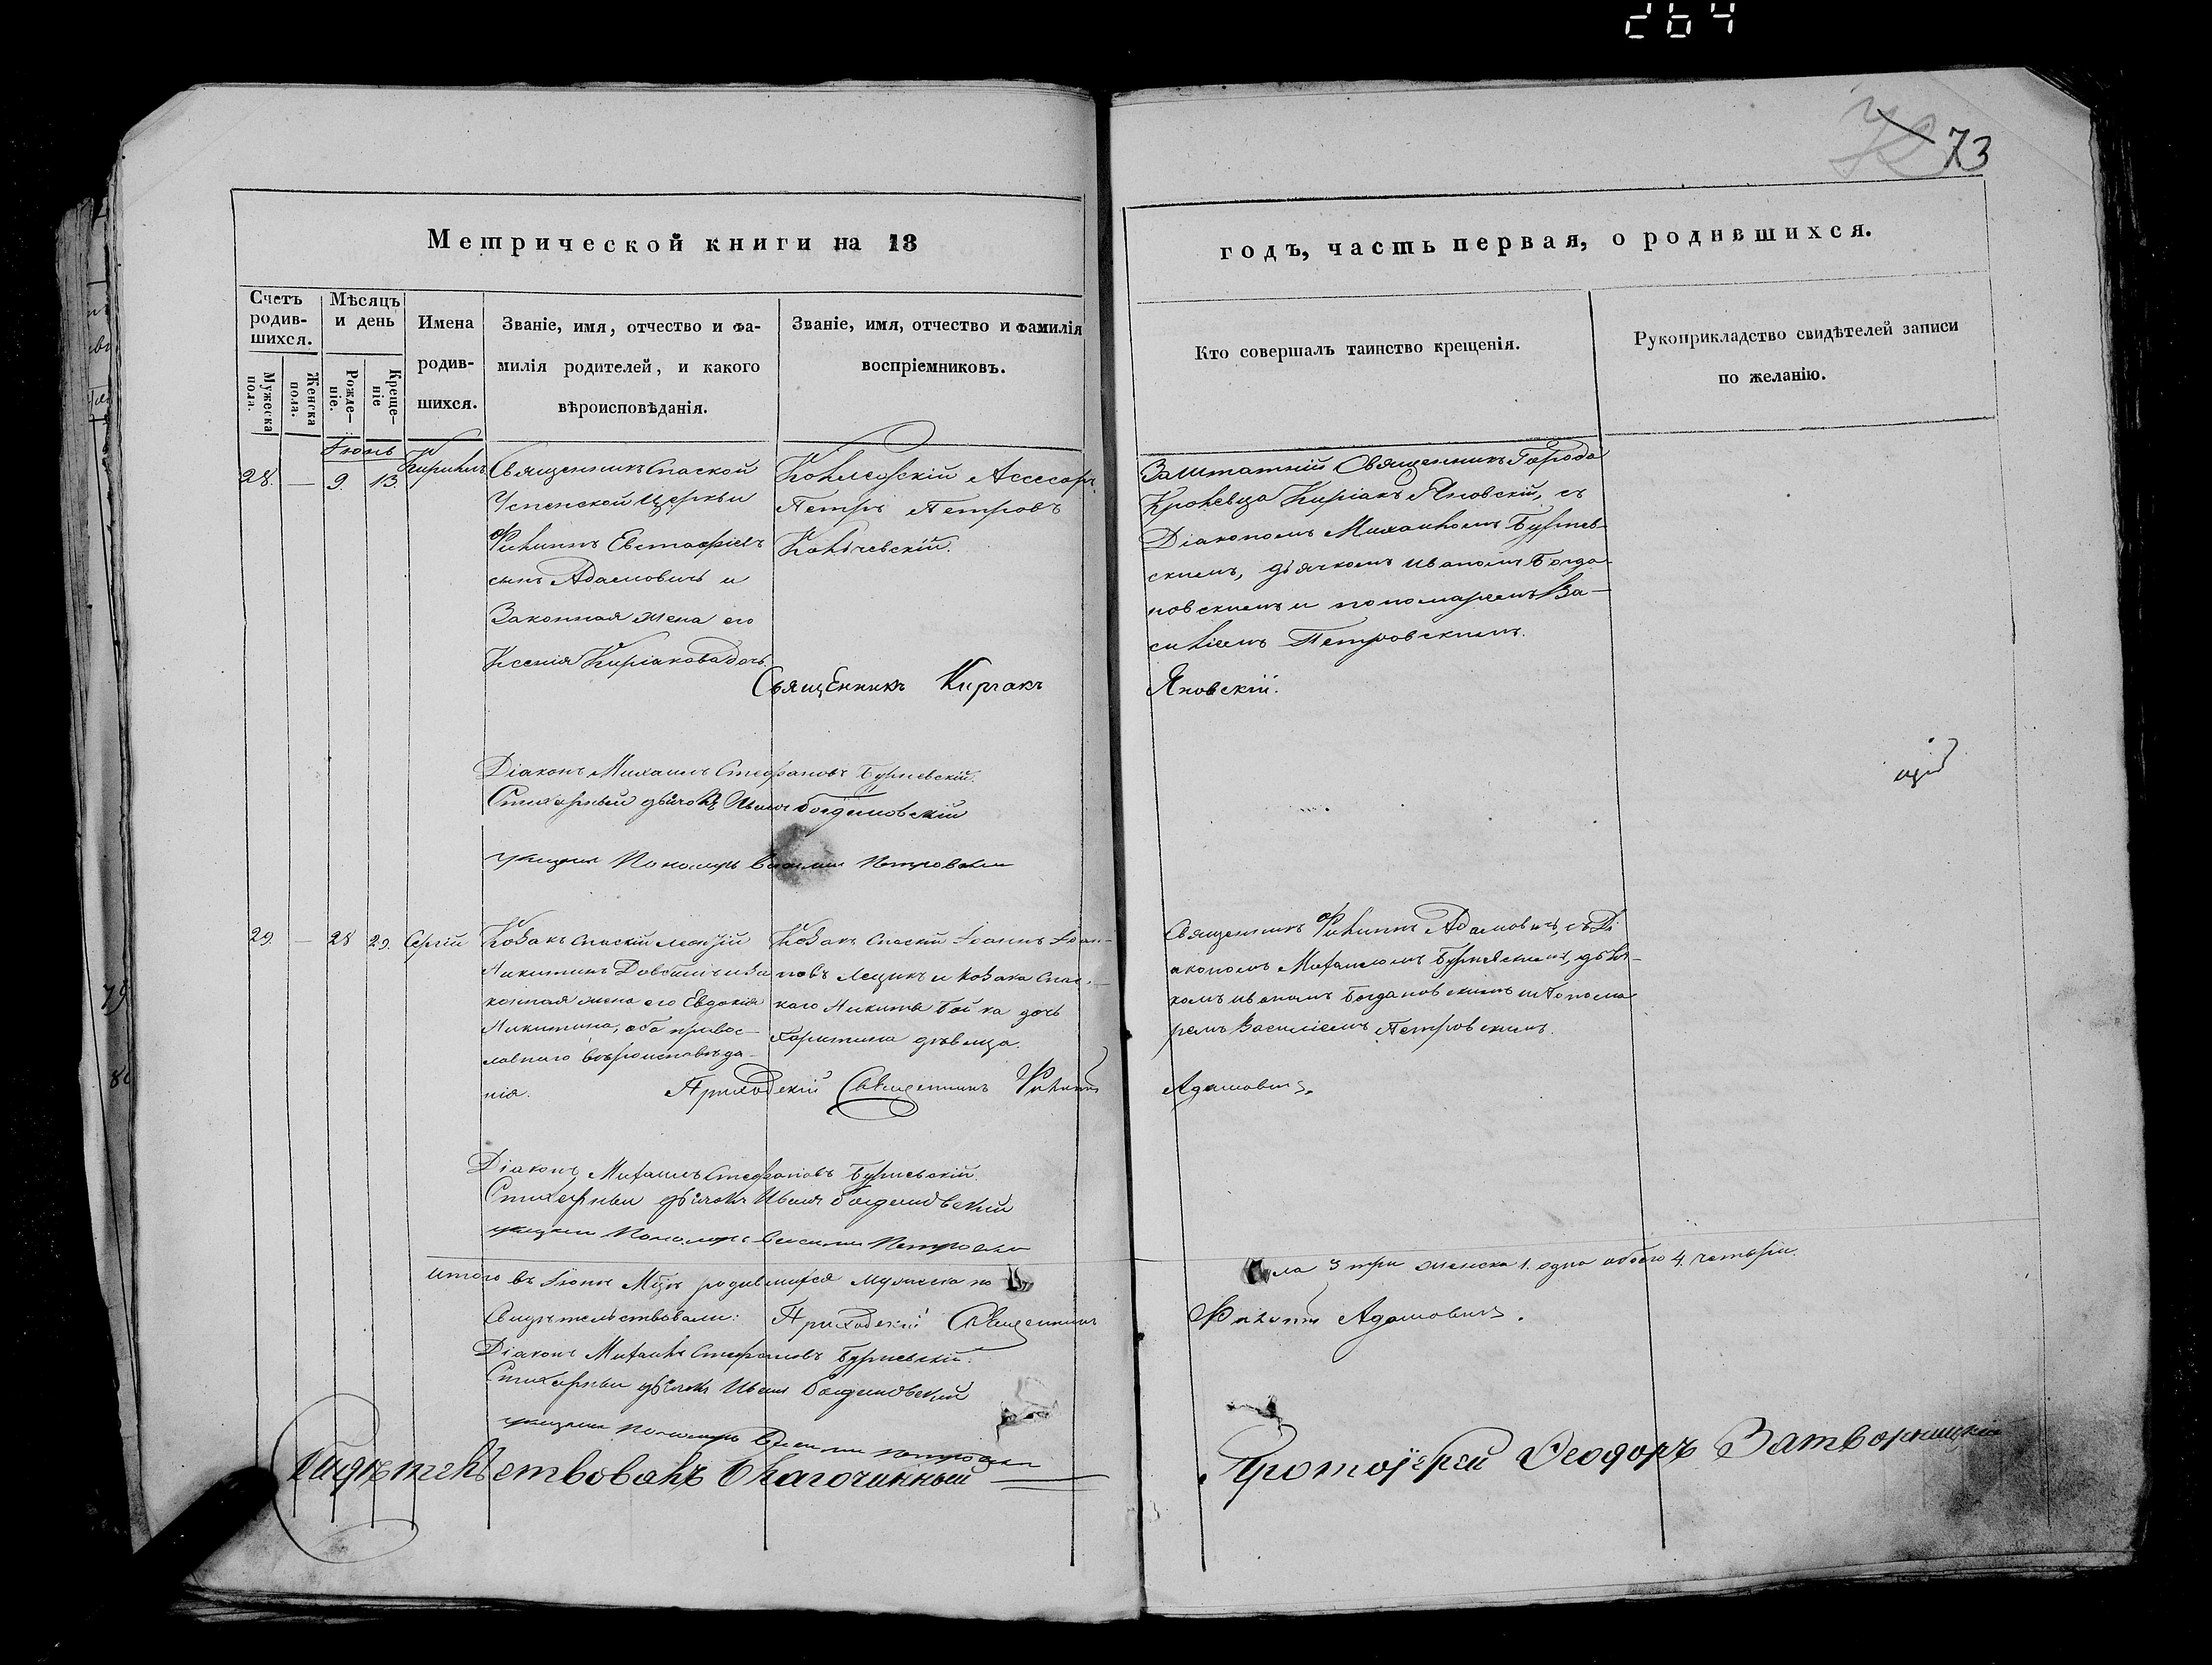 264
72 73
Метрической книги на 18
годъ, часть первая, о родившихся.
Счетъ родив-шихся.
Мужеска пола.
Женска пола.
Мѣсяцъ и день
Рожде-ніе.
Креще-ніе
Имена родив-шихся.
Званіе, имя, отчество и фа-
милія родителей, и какого
вѣроисповѣданія.
Званіе, имя, отчество и фамилія
воспріемниковъ.
Кто совершалъ таинство крещенія.
Рукоприкладство свидѣтелей записи
по желанію.
Іюнь
28. — 9. 13. Кирилъ
Священникъ Спаской
Успенской Церкви
Филиппъ Евстафіевъ
сынъ Адамовичъ и
Законная жена его
Ксенія Киріакова дочь.
Колежскій Ассесоръ
Петръ Петровъ
Заштатній Священникъ Города
Кролевца Киріакъ Яновскій, съ
Діакономъ Михаиломъ Бурнев-
скимъ, дьячкомъ Иваномъ Богда-
новскимъ и пономаремъ Ва-
силіемъ Петровскимъ.
Священникъ Киріакъ Яновскій.
Діаконъ Михаилъ Стефановъ Бурневскій.
Стихарный дьячокъ Иванъ Богдановскій
Пономарь Василий Петровский
29. — 28 29. Сергій
Козакъ Спаскій
Никитинъ и За
конная жена его Евдокія
Никитина, оба правос-
лавнаго вѣроисповѣда-
нія.
Козакъ Спаскій Іоаннъ Іоан-
новъ Лецикъ и козака Спас-
каго Никиты Бойка дочь
Харитина дѣвица.
Священникъ Филиппъ Адамовичъ, съ Ді
акономъ Михаиломъ Бурневскимъ, дьяч-
комъ Иваномъ Богдановскимъ и Понома
ремъ Василіемъ Петровскимъ.
Приходскій Священникъ Филиппъ Адамовичъ.
Діаконъ Михаилъ Стефановъ Бурневскій.
Стихарный дьячокъ Иванъ Богдановский
Пономарь Василий Петровский
Итого въ Іюнѣ Мцѣ родившихся мужеска по
ла 3 три женска 1. одна обоего 4. четыри.
Свидѣтельствовали: Приходскій Священникъ Филиппъ Адамовичъ.
Діаконъ Михаилъ Стефановъ Бурневскій.
Стихарный дьячокъ Иванъ Богдановский
Пономарь Василий Петровский
Свидѣтельствовалъ Благочинный Протоіерей Ѳеодоръ Затворницкій